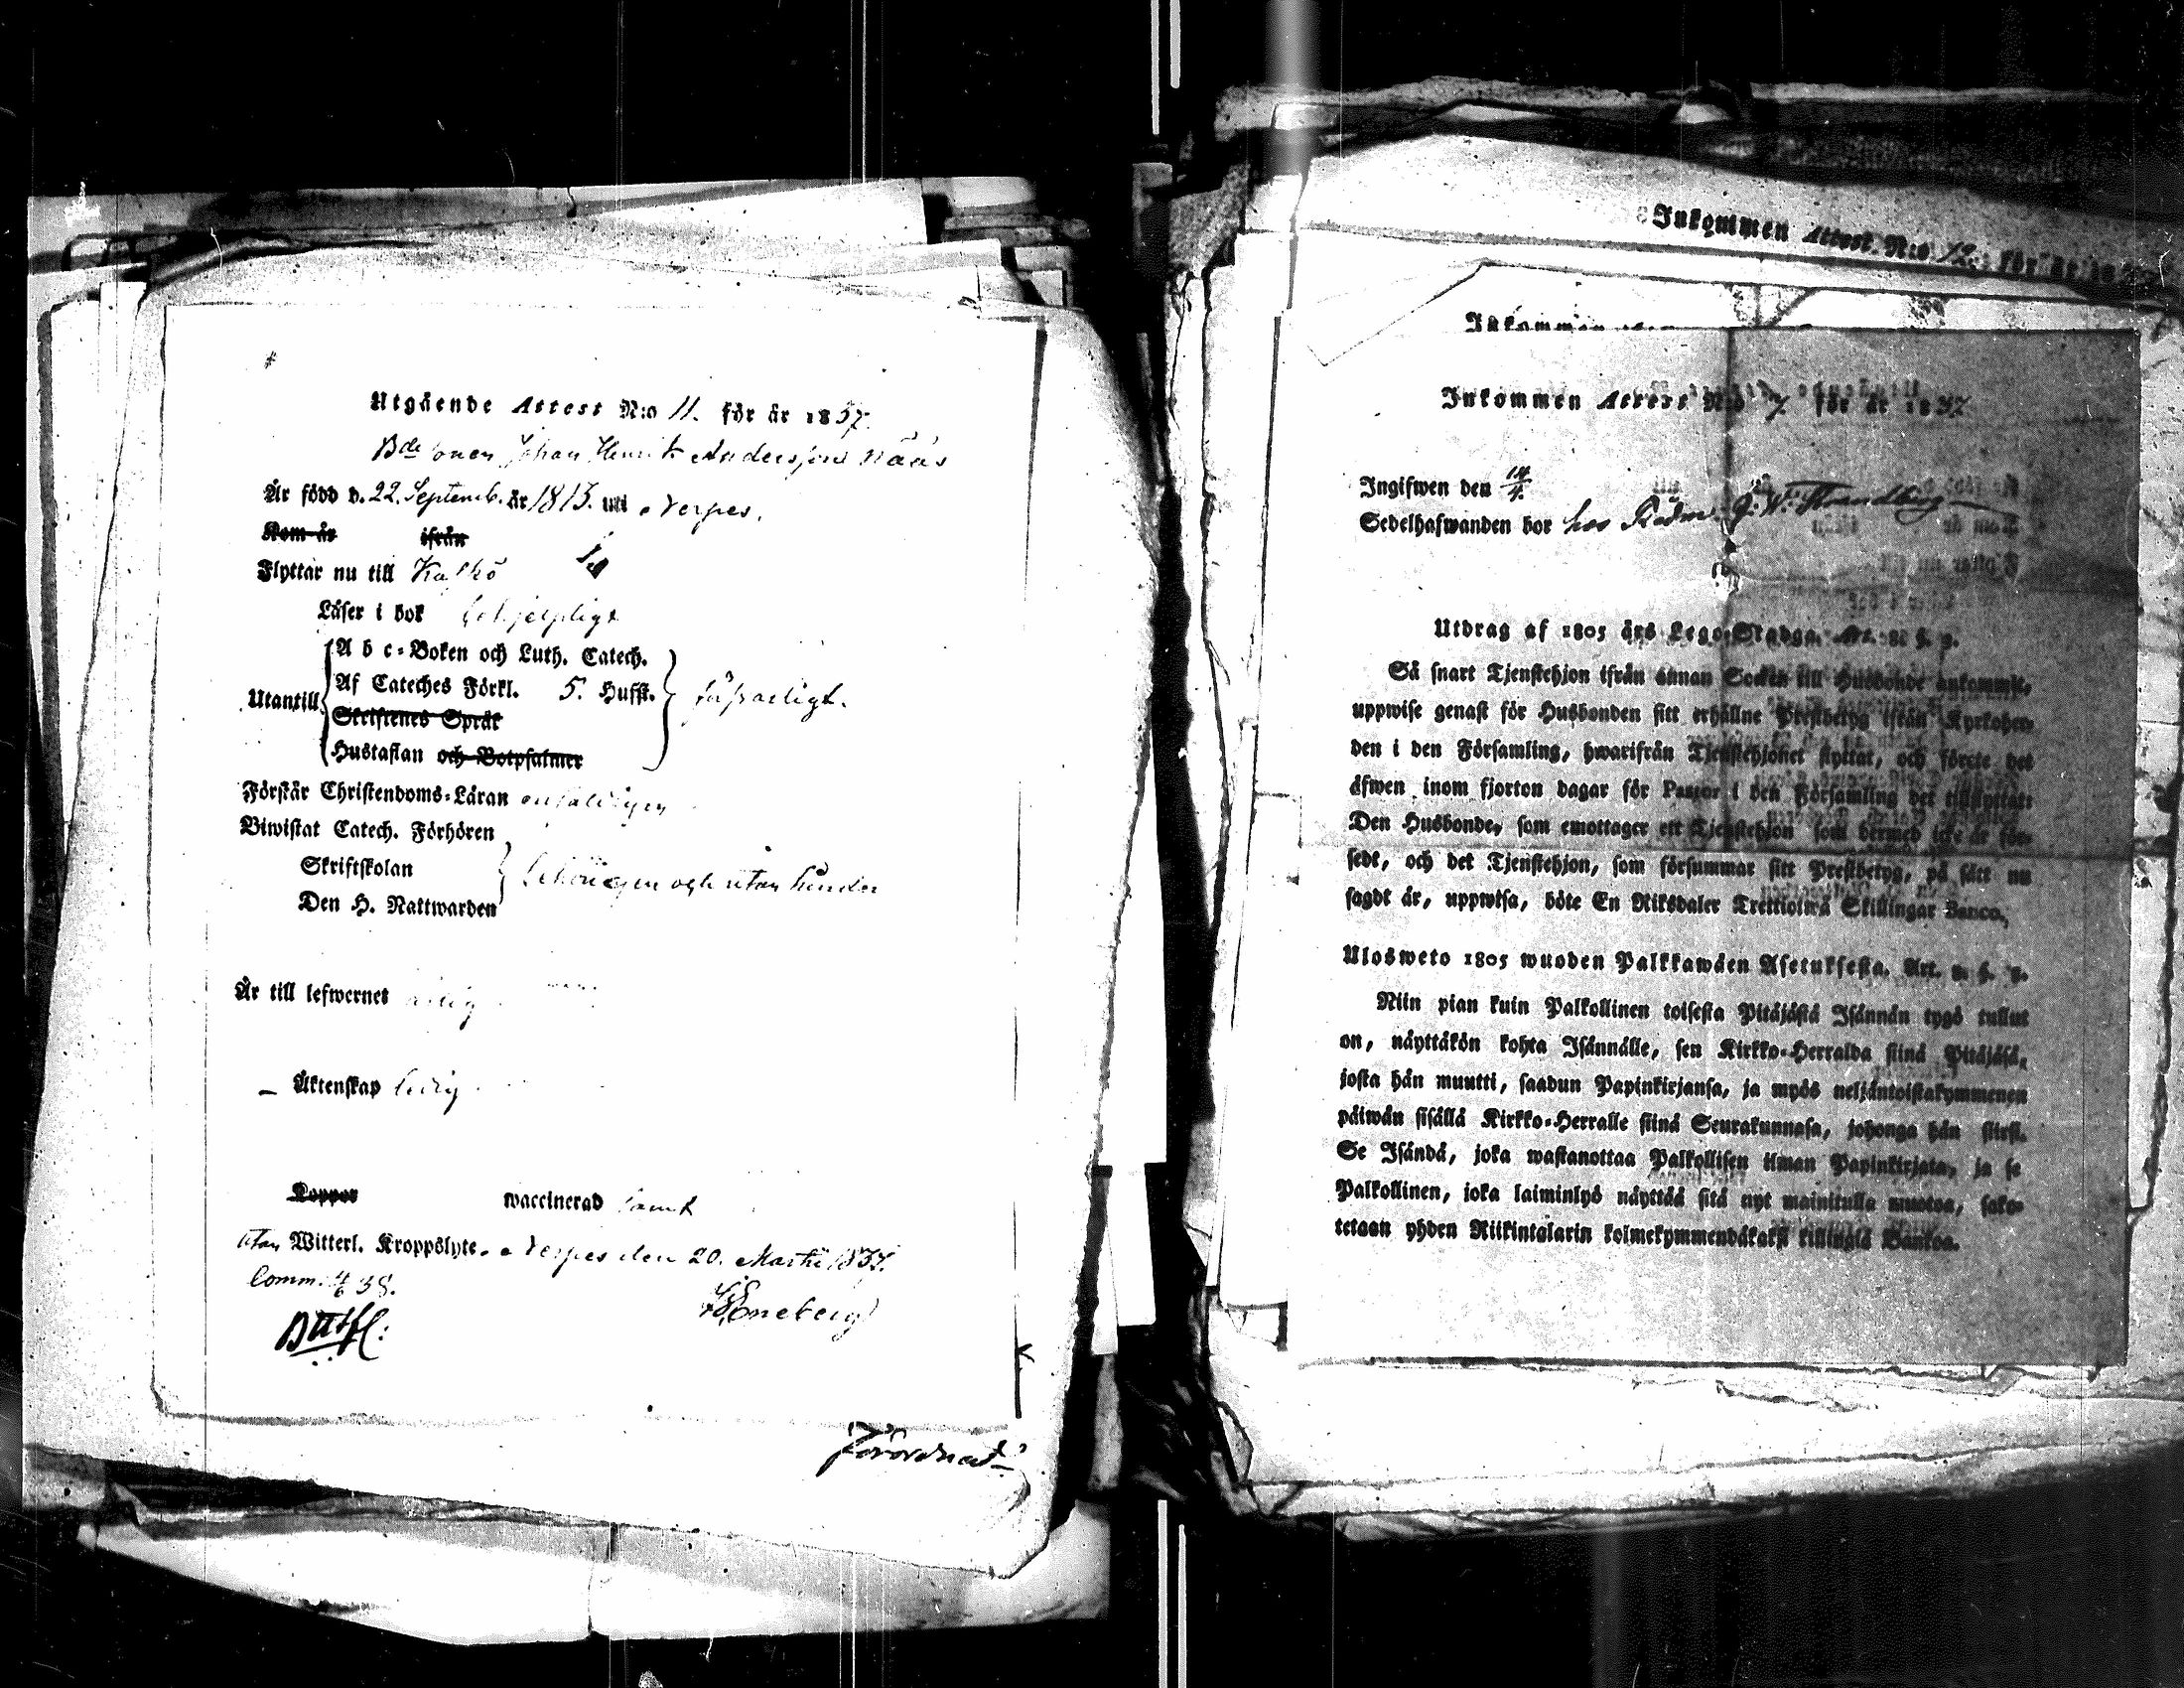 Utgående Attest N:o 11. för år 1837.
Bdesonen Johan Henrik Andersson Nääs
Är född d. 22. Septemb. år 1813. uti Nerpes.
Kom år ifrån
Flyttar nu till Kaskö
Läser i bok behjelpligt
A b c-Boken och Luth. Catech.
Utantill Af Cateches Förkl. 5. Hufst. försvarligt.
Skriftenes Språk
Hustaflan och Botpsalmer
Förstår Christendoms-Läran enfaldigen
Biwistat Catech. Förhören
Skriftskolan behörigen och utan hinder
Den H. Nattwarden
Är till lefwernet ärlig
— Äktenskap ledig
Koppor waccinerad samt
utan Witterl. Kroppslyte. Nerpes den 20. Martii 1837.
Comm. 4/6 38.
Eneberg
Inkommen Attest N:o 12. för år 18
Inkommen
Inkommen Attest N:o 7. för år 1837
Ingifwen den 14/4.
Sedelhafwanden bor hos Rådm. J. W. Strandberg
Utdrag af 1805 års Lego-Stadga. Art. 8. §. 9.
Så snart Tjenstehjon ifrån annan Socken till Husbonde ankommit,
uppwise genast för Husbonden sitt erhållne Prestbetyg ifrån Kyrkoher-
den i den Församling, hwarifrån Tjenstehjonet flyttat, och förete det
äfwen inom fjorton dagar för Pastor i den Församling det tillflyttat:
Den Husbonde, som emottager ett Tjenstehjon som dermed icke är för-
sedt, och det Tjenstehjon, som försummar sitt Prestbetyg, på sätt nu
sagdt är, uppwisa, böte En Riksdaler Trettiotwå Skillingar Banco.
Ulosweto 1805 wuoden Palkkawäen Asetuksesta. Art. 8. §. 9.
Niin pian kuin Palkollinen toisesta Pitäjästä Isännän tygö tullut
on, näyttäkön kohta Isännälle, sen Kirkko-Herralda siinä Pitäjäsä,
josta hän muutti, saadun Papinkirjansa, ja myös neljäntoistakymmenen
päiwän sisällä Kirkko-Herralle siinä Seurakunnasa, johonga hän siirsi.
Se Isändä, joka wastanottaa Palkollisen ilman Papinkirjata, ja se
Palkollinen, joka laiminlyö näyttää sitä nyt mainitulla muotoa, sako-
tetaan yhden Riikintalarin kolmekymmendäkaksi killingiä Bankoa.